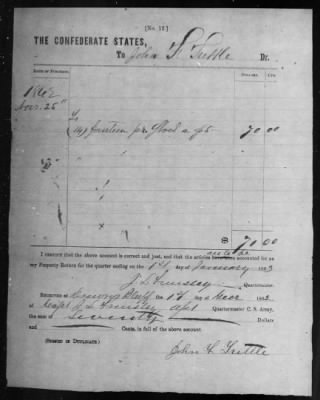 [No. 12]
THE CONFEDERATE STATES,
To John F. Tuttle Dr.
DATE OF PURCHASE. DOLLARS CTS.
1862
Nov. 25"
To
(14) fourteen pr Shoes a $5 70 00
$ 70 00
I CERTIFY that the above account is correct and just, and that the articles are to be accounted for on
my Property Return for the quarter ending on the 1st day of January 1863
Quartermaster.
RECEIVED at Drewrys Bluff on 1st of Decr 1862
of Capt Quartermaster C. S. Army,
seventy Dollars
and Cents, in full of the above account.
(SIGNED IN DUPLICATE.)
John F. Tuttle